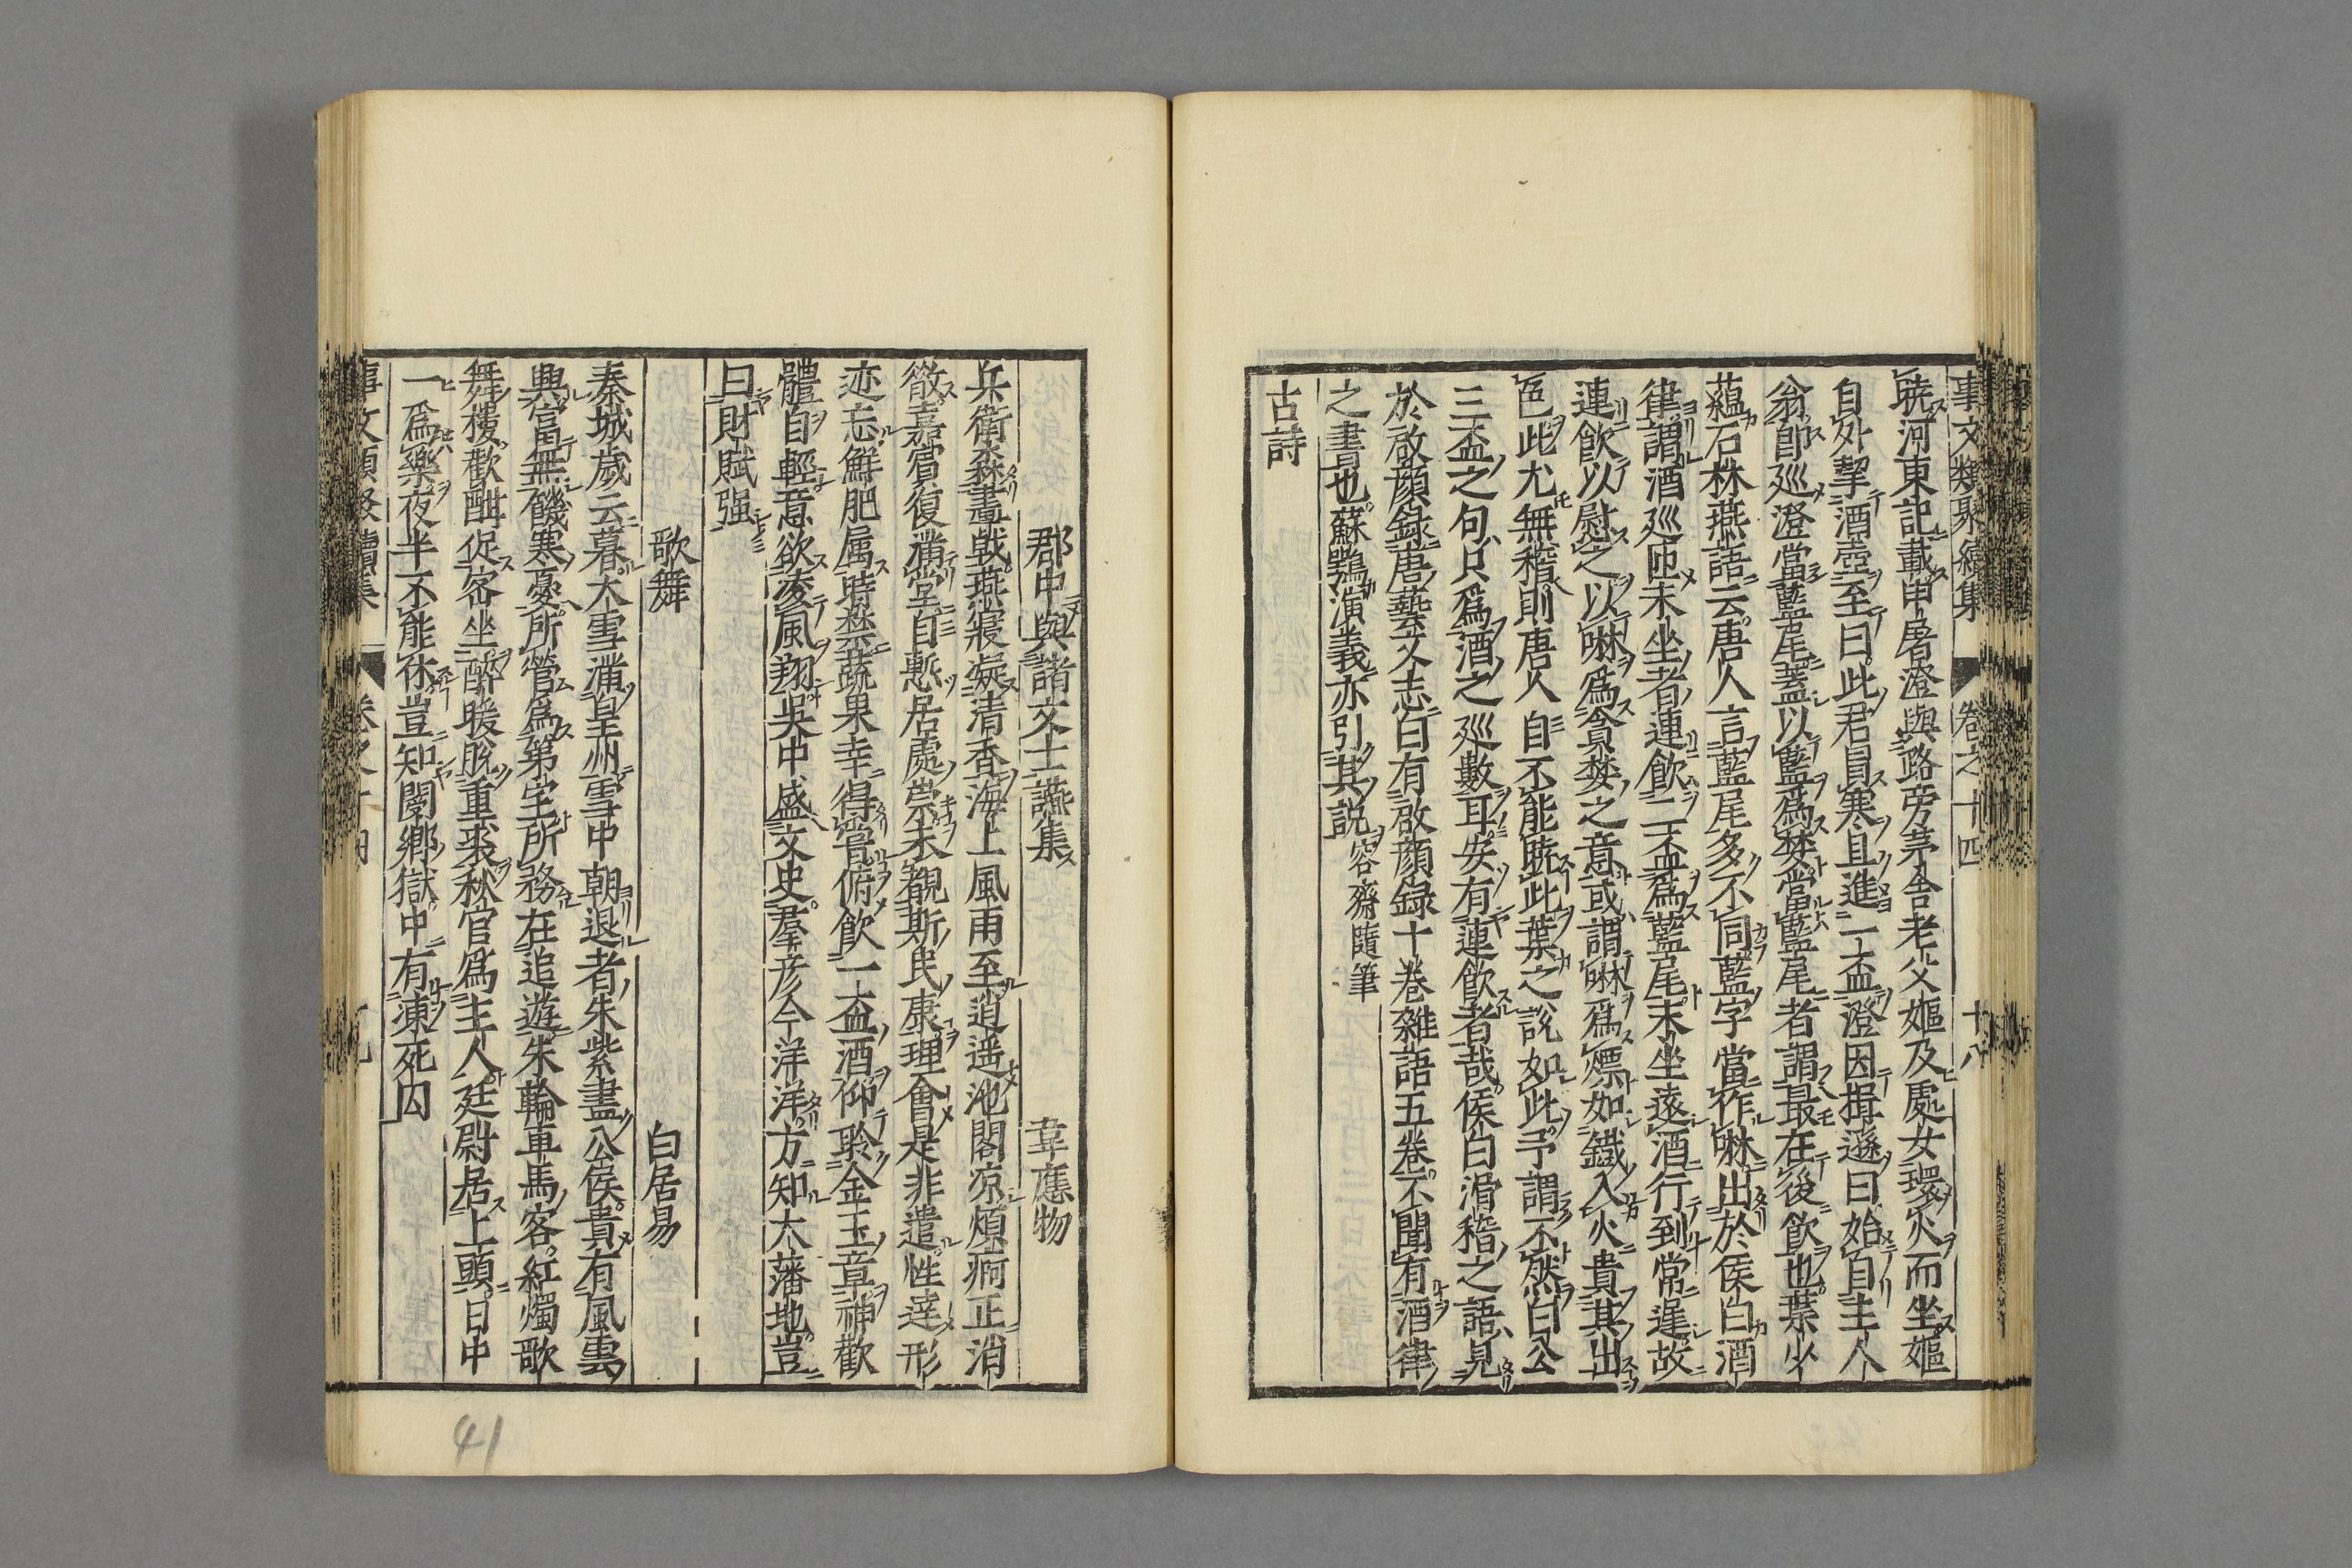 事文類聚續集 卷之十四 十八
曉河東記載申屠澄與路旁茅舍老父嫗及處女環火而坐嫗
自外挈酒壺至曰此君冐寒且進一盃澄因揖遜曰始自主人
翁卽廵澄當藍尾蓋以藍爲婪當藍尾者謂最在後飲也葉少
蘊石林燕語云唐人言藍尾多不同藍字當作啉出於侯白酒
律謂酒廵匝末坐者連飲三盃爲藍尾末坐遠酒行到常遲故
連飲以慰之以啉爲貪婪之意或謂啉爲燣如鐵入火貴其出
色此尤無稽則唐人自不能曉此葉之說如此予謂不然白公
三盃之句只爲酒之廵數耳安有連飲者哉侯白滑稽之語見
於啟顔錄唐藝文志白有啟顔録十卷雜語五卷不聞有酒律
之書也蘇鶚演義亦引其説 容齋隨筆
古詩
郡中與諸文士讌集 韋應物
兵衛森畫戟燕寢凝清香海上風雨至逍遥池閣凉煩痾正消
散嘉賔復滿堂自慙居處崇未覩斯民康理會是非遣性達形
迹忘鮮肥属時禁蔬果幸得嘗俯飲一盃酒仰聆金玉章神歡
體自輕意欲凌風翔吳中盛文史羣彦今洋洋方知大藩地豈
曰財賦强
歌舞 白居易
秦城歲云暮大雪滿皇州雪中朝退者朱紫盡公侯貴有風雲
興富無饑寒憂所營爲第宅所務在追遊朱輪車馬客紅燭歌
舞樓歡酣促密坐醉暖脫重裘秋官爲主人廷尉居上頭日中
一爲樂夜半不能休豈知閿鄉獄中有凍死囚
事文類聚續集 卷之十四 十九
41